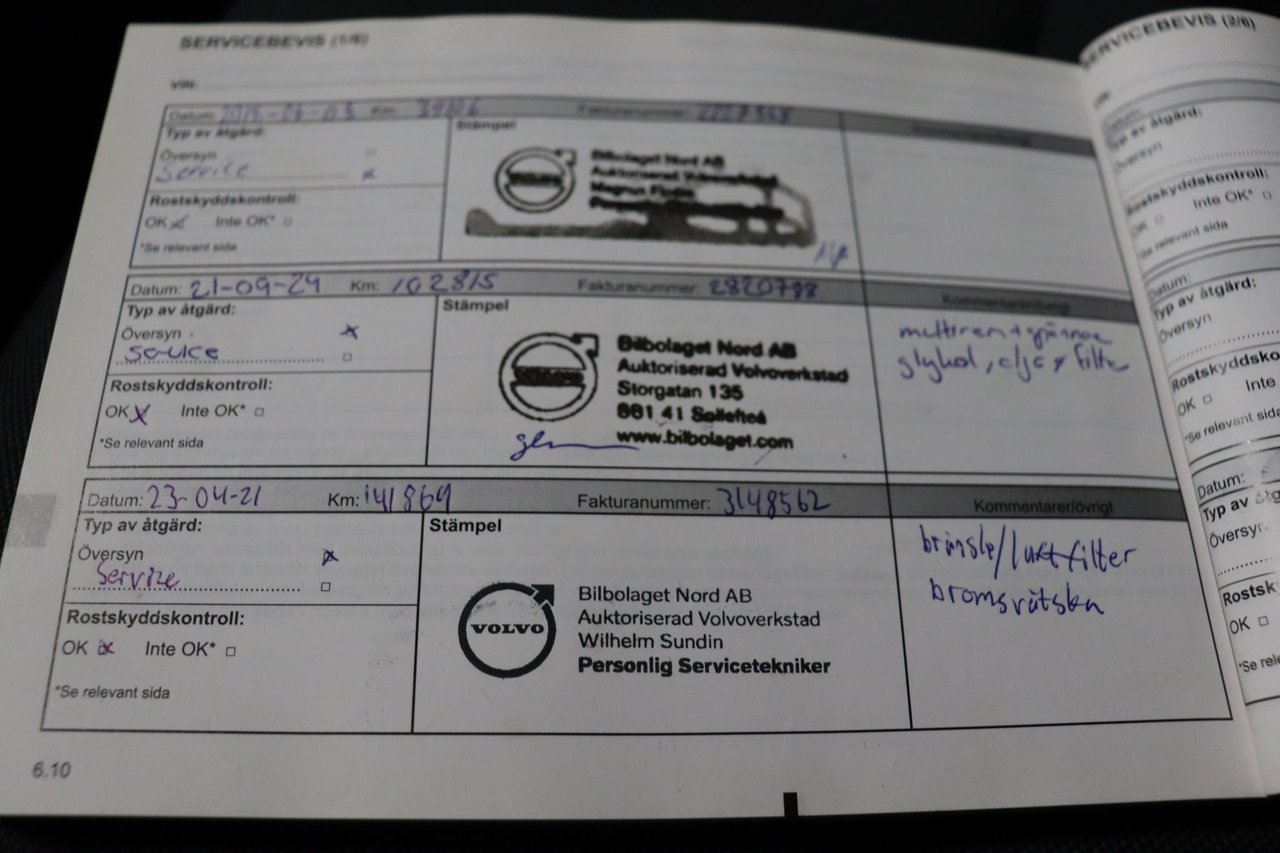 SERVICEBEVIS (1/6)
VIN:
Datum: Km: Fakturanummer:
Typ av åtgärd:
Stämpel
Översyn
Service
Bilbolaget Nord AB
Auktoriserad Volvoverkstad
Magnus
VOLVO
Rostskyddskontroll:
OK Inte OK*
*Se relevant sida
Datum: 21-09-24 Km: 102815 Fakturanummer: 2820798 Kommentarer/övrigt
Typ av åtgärd:
Stämpel
Översyn
Service
Bilbolaget Nord AB
Auktoriserad Volvoverkstad
Storgatan 135
881 41 Sollefteå
www.bilbolaget.com
multirem +
glykol, olja + filter
Rostskyddskontroll:
OK Inte OK*
*Se relevant sida
Datum: 23-04-21 Km: 141869 Fakturanummer: 3148562 Kommentarer/övrigt
Typ av åtgärd:
Stämpel
Översyn
Service
VOLVO
Bilbolaget Nord AB
Auktoriserad Volvoverkstad
Wilhelm Sundin
Personlig Servicetekniker
bränsle/luftfilter
bromsvätska
Rostskyddskontroll:
OK Inte OK*
*Se relevant sida
6.10
SERVICEBEVIS (2/6)
Typ av åtgärd:
Översyn
Rostskyddskontroll:
OK Inte OK*
*Se relevant sida
Datum:
Typ av åtgärd:
Översyn
Rostskyddsko
OK Inte
*Se relevant
Datum:
Typ av åtg
Översyn
Rostsk
OK
*Se rele